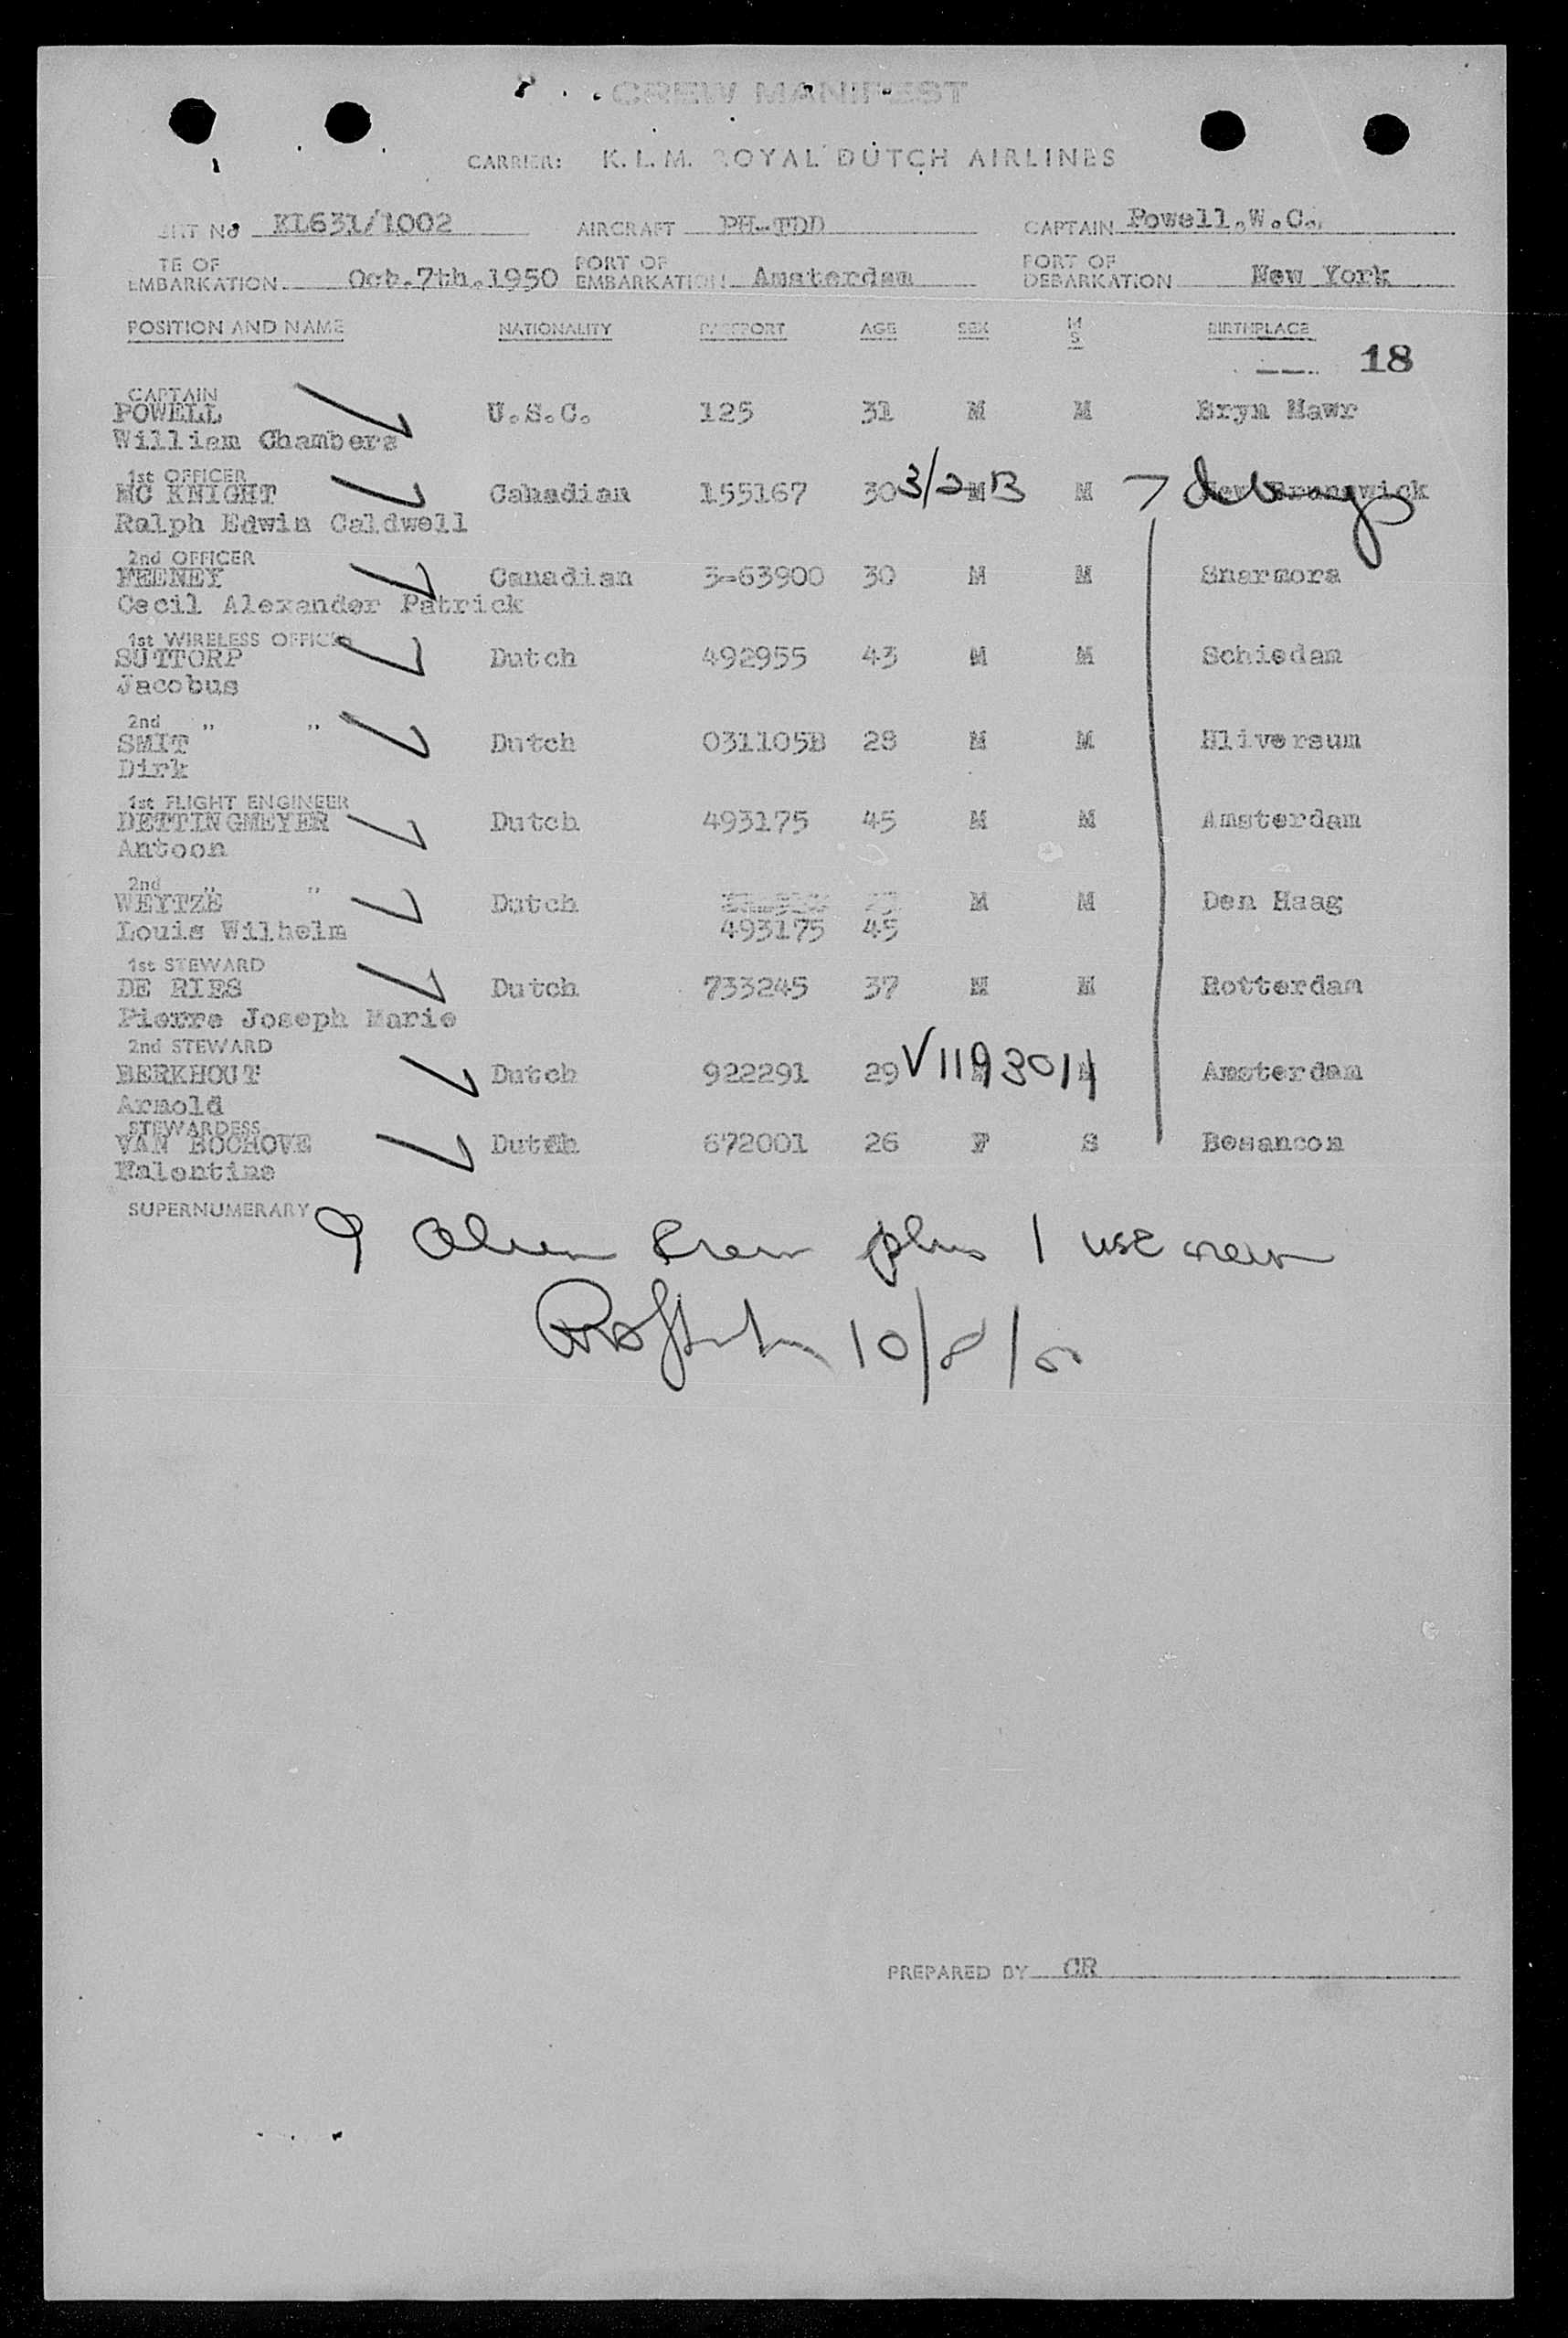 CREW MANIFEST
CARRIER: K. L. M. ROYAL DUTCH AIRLINES
No KL631/1002 AIRCRAFT PH-TDD CAPTAIN Powell.W.C.
TE OF EMBARKATION Oct.7th.1950 PORT OF EMBARKATION Amsterdam PORT OF DEBARKATION New York
POSITION AND NAME NATIONALITY PASSPORT AGE SEX M S BIRTHPLACE
18
CAPTAIN
POWELL U.S.C. 125 31 M M Bryn Mawr
William Chambers
1st OFFICER
MC KNIGHT Canadian 155167 30 M M New Brunswick
Ralph Edwin Caldwell
2nd OFFICER
FEENEY Canadian 3-63900 30 M M Snarmora
Cecil Alexander Patrick
1st WIRELESS OFFICER
SUTTORP Dutch 492955 43 M M Schiedam
Jacobus
2nd " "
SMIT Dutch 031105B 28 M M Hliversum
Dirk
1st FLIGHT ENGINEER
DETTINGMEYER Dutch 493175 45 M M Amsterdam
Antoon
2nd " "
WEYTZE Dutch M M Den Haag
Louis Wilhelm 493175 45
1st STEWARD
DE RIES Dutch 733245 37 M M Rotterdam
Pierre Joseph Marie
2nd STEWARD
BERKHOUT Dutch 922291 29 V1193011 Amsterdam
Arnold
STEWARDESS
VAN BOCHOVE Dutch 672001 26 F S Besancon
Halentine
SUPERNUMERARY
9 Alien Crew plus 1 USC crew
10/8/50
PREPARED BY CR